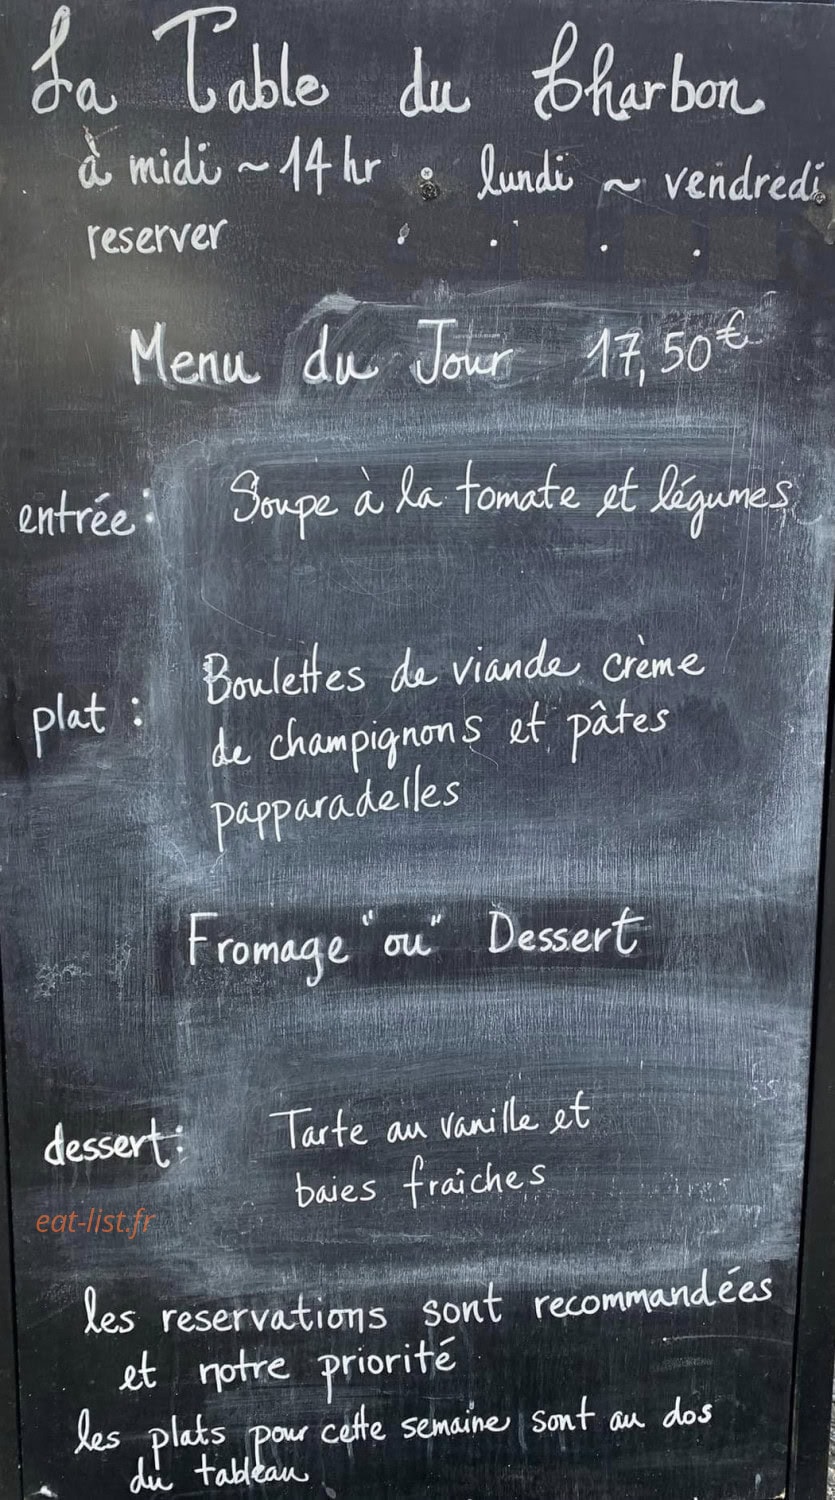 La Table du Charbon
à midi ~ 14 hr : lundi ~ vendredi
reserver
Menu du Jour 17,50€
entrée : Soupe à la tomate et légumes
plat : Boulettes de viande crème
de champignons et pâtes
papparadelles
Fromage "ou" Dessert
dessert : Tarte au vanille et
baies fraîches
eat-list.fr
les reservations sont recommandées
et notre priorité
les plats pour cette semaine sont au dos
du tableau